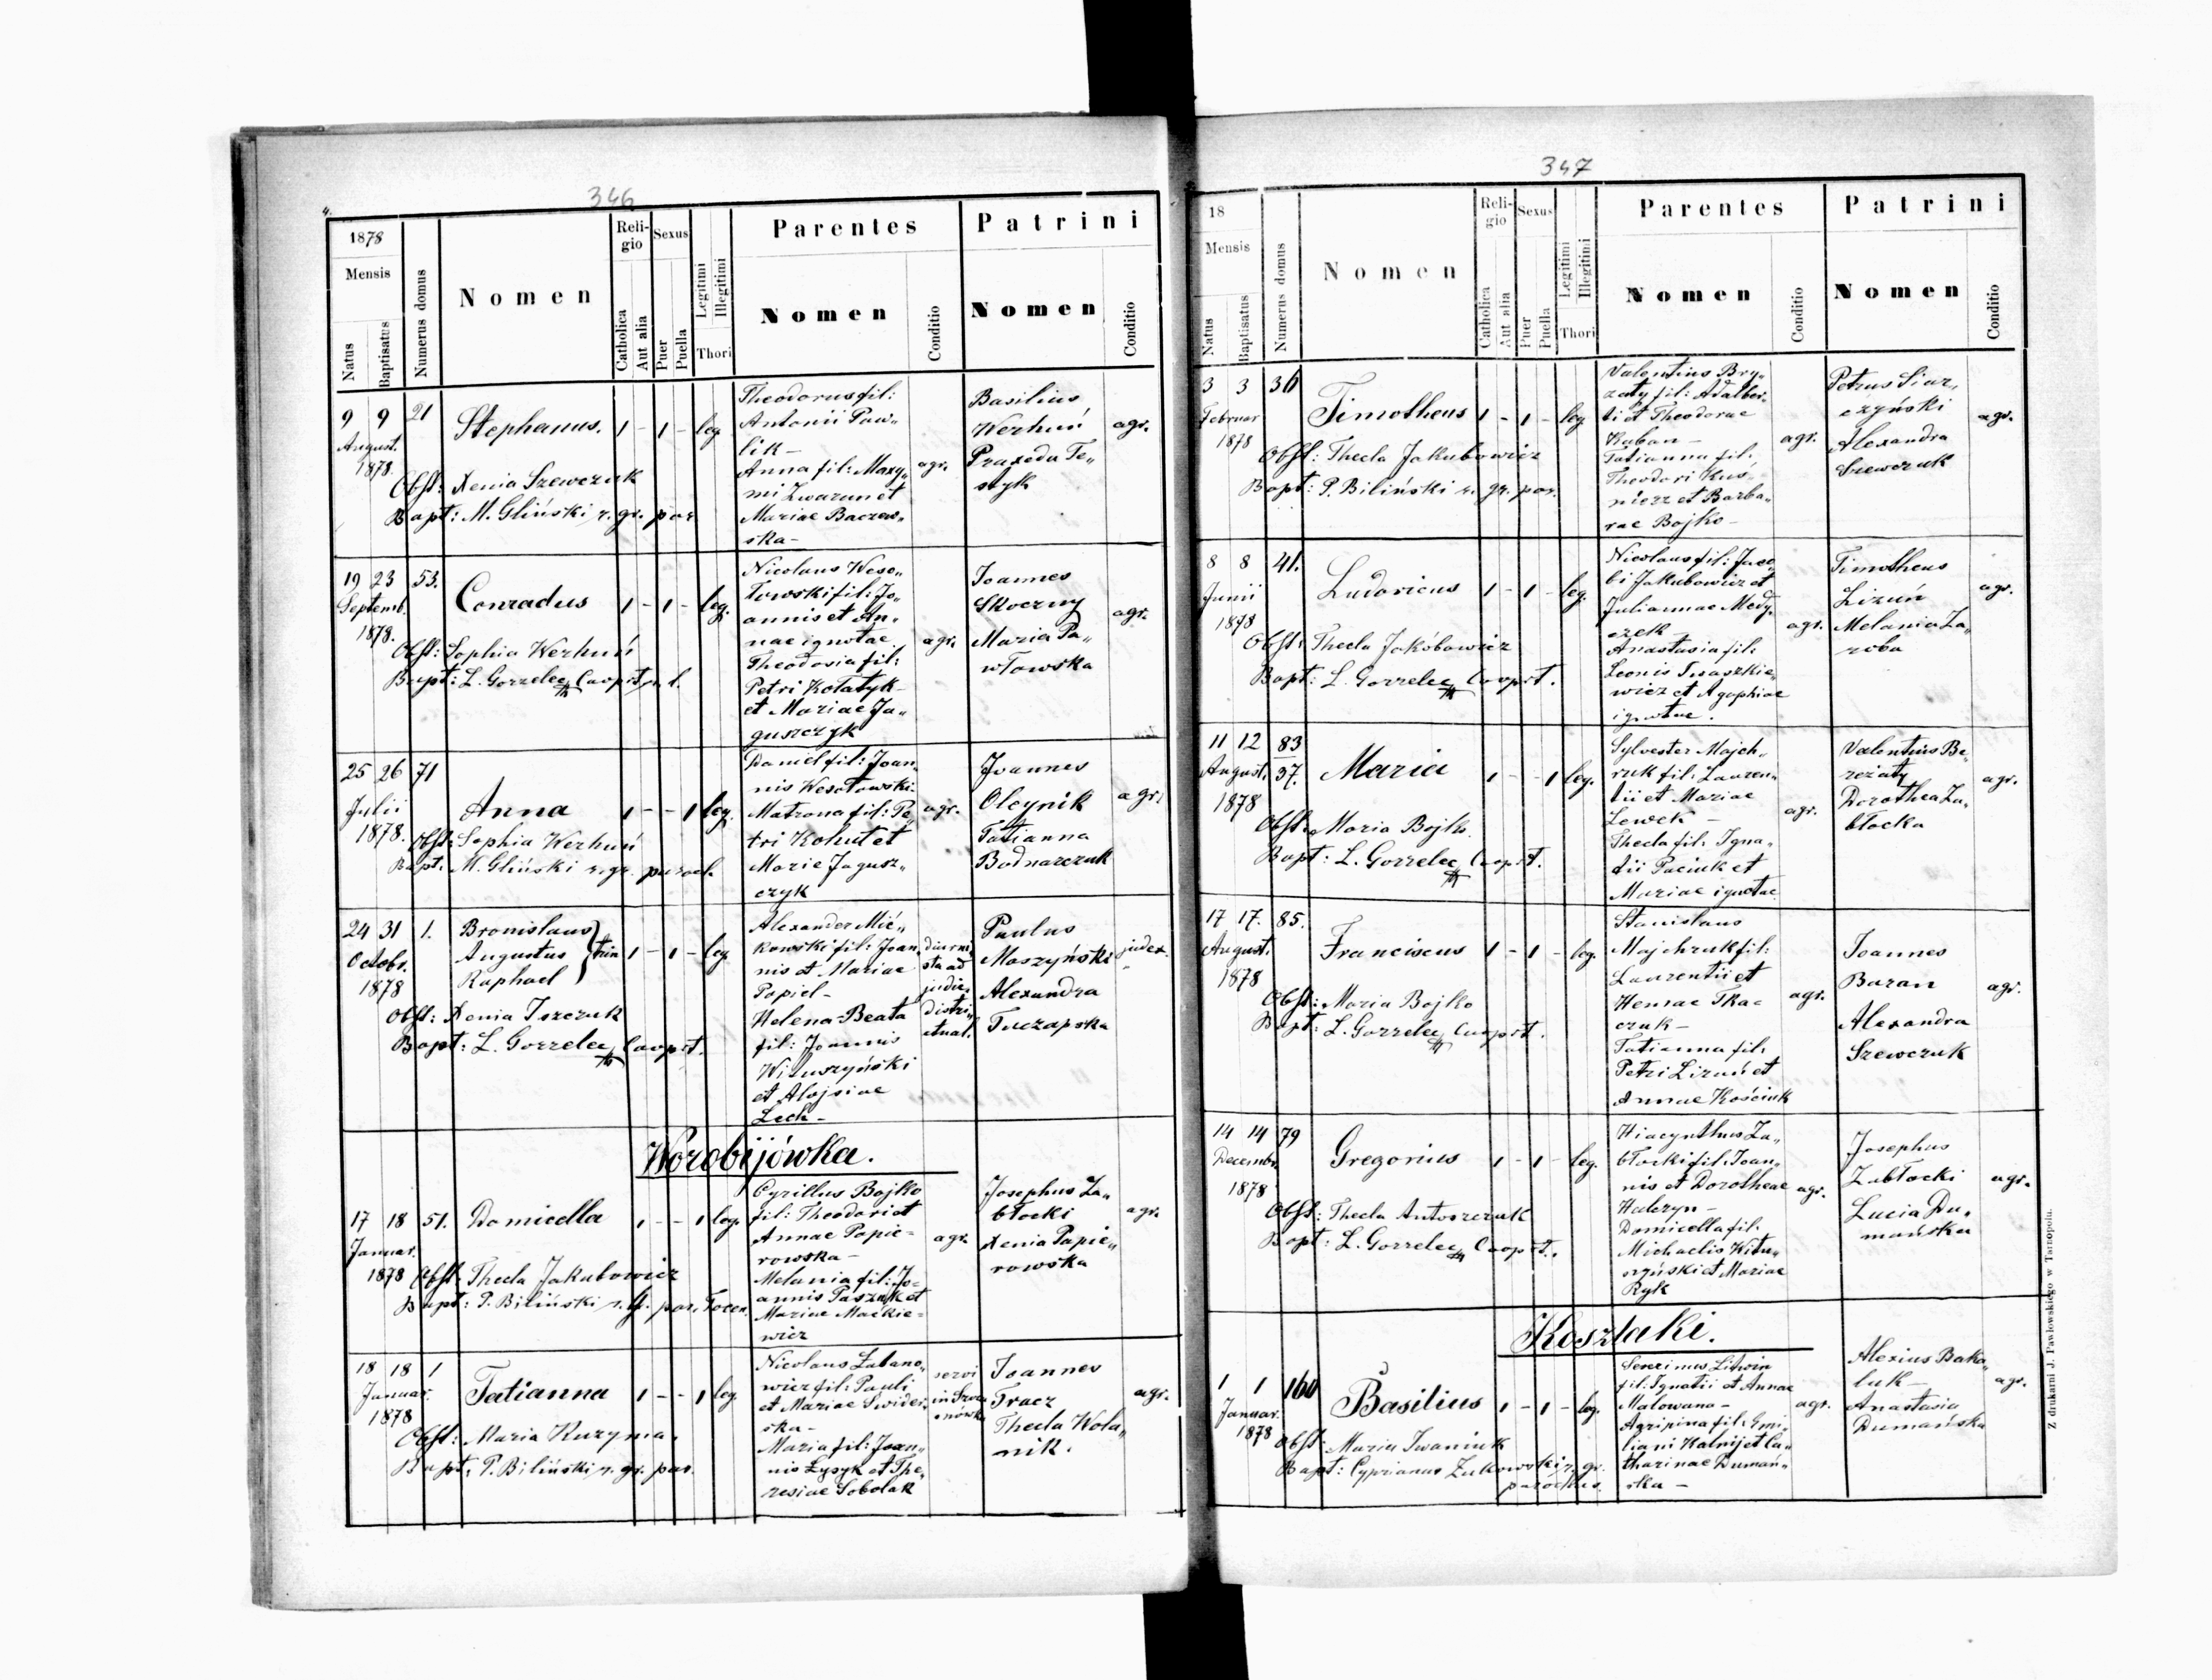 346
4.
1878
Mensis
Natus
Baptisatus
Numerus domus
Nomen
Religio
Catholica
Aut alia
Sexus
Puer
Puella
Legitimi
Illegitimi
Thori
Parentes
Nomen
Conditio
Patrini
Nomen
Conditio
9 9 21
August.
1878.
Stephanus. 1 - 1 - leg.
Obst: Xenia Szewczuk
Bapt: M. Gliński r. gr. par
Theodorus fil:
Antonii Paw„
lik -
Anna fil: Maxy„
mi Zwarun et
Mariae Baczew„
ska -
agr.
Basilius
Werhuń
Praxeda Te„
styk
agr.
19 23 53.
Septemb.
1878.
Conradus 1 - 1 - leg.
Obst: Sophia Werhuń
Bapt: L. Gorzelec Cooprt. r. l.
Nicolaus Weso„
łowski fil: Jo„
annis et An„
nae ignotae
Theodosia fil:
Petri Kołatyk -
et Mariae Ja„
guszczyk
agr.
Joannes
Skoczny
Maria Pa„
włowska
agr.
25 26 71
Julii
1878.
Anna 1 - - 1 leg.
Obst: Sophia Werhuń
Bapt. M. Gliński r. gr. paroch
Daniel fil: Joan„
nis Wesołowski -
Matrona fil: Pe„
tri Kohut et
Marie Jagusz„
czyk
agr.
Joannes
Oleynik
Tatianna
Bodnarczuk
agr.
24 31 1.
Octobr.
1878
Bronislaus
Augustus
Raphael
trin 1 - 1 - leg
Obst: Xenia Iszczuk
Bapt: L. Gorzelec Cooprt.
Alexander Mić„
kowski fil: Joan„
nis et Mariae
Popiel -
Helena Beata
fil: Joannis
et Alojsiae
Lech -
diurni„
sta ad
judic.
distri„
ctual.
Paulus
Maszyński
Alexandra
Tuczapska
judex
Worobijówka.
17 18 51.
Januar.
1878
Domicella 1 - - 1 leg.
Obst: Thecla Jakubowicz
Bapt: P. Biliński r. g. par. Tocen.
Cyrillus Bojko
fil: Theodori et
Annae Papie=
rowska -
Melania fil: Jo=
annis Paszuk et
Mariae Mackie=
wicz
agr.
Josephus Za„
błocki
Xenia Papie„
rowska
agr.
18 18 1
Januar.
1878
Tatianna 1 - - 1 leg.
Obst: Maria Kuzyma.
Bapt. P. Biliński r. gr. par.
Nicolaus
wicz fil: Pauli
et Mariae Swider„
ska -
Maria fil: Joan„
nis Łysyk et The„
resiae Sobolak
servi
Joannes
Tracz
Thecla Wola„
nik.
agr.
347
18
Mensis
Natus
Baptisatus
Numerus domus
Nomen
Religio
Catholica
Aut alia
Sexus
Puer
Puella
Legitimi
Illegitimi
Thori
Parentes
Nomen
Conditio
Patrini
Nomen
Conditio
3 3 36
Februar
1878
Timotheus 1 - 1 - leg.
Obst: Thecla Jakubowicz
Bapt: P. Biliński r. gr. par.
Valentius Bry„
zaty fil: Adalber„
ti et Theodorae
Kuban -
Tatianna fil:
Theodori Kuś„
nierz et Barba„
rae Bojko -
agr.
Petrus Siar„
czyński
Alexandra
Szewczuk
agr.
8 8 41.
Junii
1878
Ludovicus 1 - 1 - leg.
Obst: Thecla Jakóbowicz
Bapt: L. Gorzelec Cooprt.
Nicolaus fil: Jaco„
bi Jakubowicz et
Juliannae Medy„
czek -
Anastasia fil:
Leonis Iwaszkie„
wicz et Agaphiae
ignotae.
agr.
Timotheus
Lizuń
Melania Za„
roba
agr.
11 12 83
37.
August.
1878
Maria 1 - - 1 leg.
Obst: Maria Bojko.
Bapt: L. Gorzelec Cooprt.
Sylvester Majch„
ruk fil: Lauren„
tii et Mariae
Lewek -
Thecla fil: Igna„
tii Paciuk et
Mariae ignotae
agr.
Valentius Be„
reżaty
Dorothea Za„
błocka
agr.
17 17. 85.
August.
1878
Franciscus 1 - 1 - leg.
Obst: Maria Bojko
Bapt: L. Gorzelec Cooprt.
Stanislaus
Majchruk fil:
Laurentii et
Tkac
czuk -
Tatianna fil:
Petri Lizuń et
Annae Kościuk
agr.
Joannes
Baran
Alexandra
Szewczuk
agr.
14 14 79
Decembr.
1878
Gregorius 1 - 1 - leg.
Obst: Thecla Antoszczuk
Bapt: L. Gorzelec Cooprt.
Hiacynthus Za„
błocki fil: Joan„
nis et Dorotheae
Domicella fil:
Michaelis Witu„
szyński et Mariae
Ryk
agr.
Josephus
Zabłocki
Lucia Du„
mańska
agr.
Koszlaki.
1 1 160
Januar.
1878
Basilius 1 - 1 - leg.
Obst: Maria Iwaniuk
Bapt: Cyprianus Żukowski r. gr.
parochus.
Severinus Litwin
fil: Ignatii et Annae
Malowana -
Agripina fil: Emi„
liani Kalnij et Ca„
tharinae Dumań„
ska -
agr.
Alexius Baka„
luk -
Anastasia
Dumańska
agr.
Z drukarni J. Pawłowskiego w Tarnopolu.